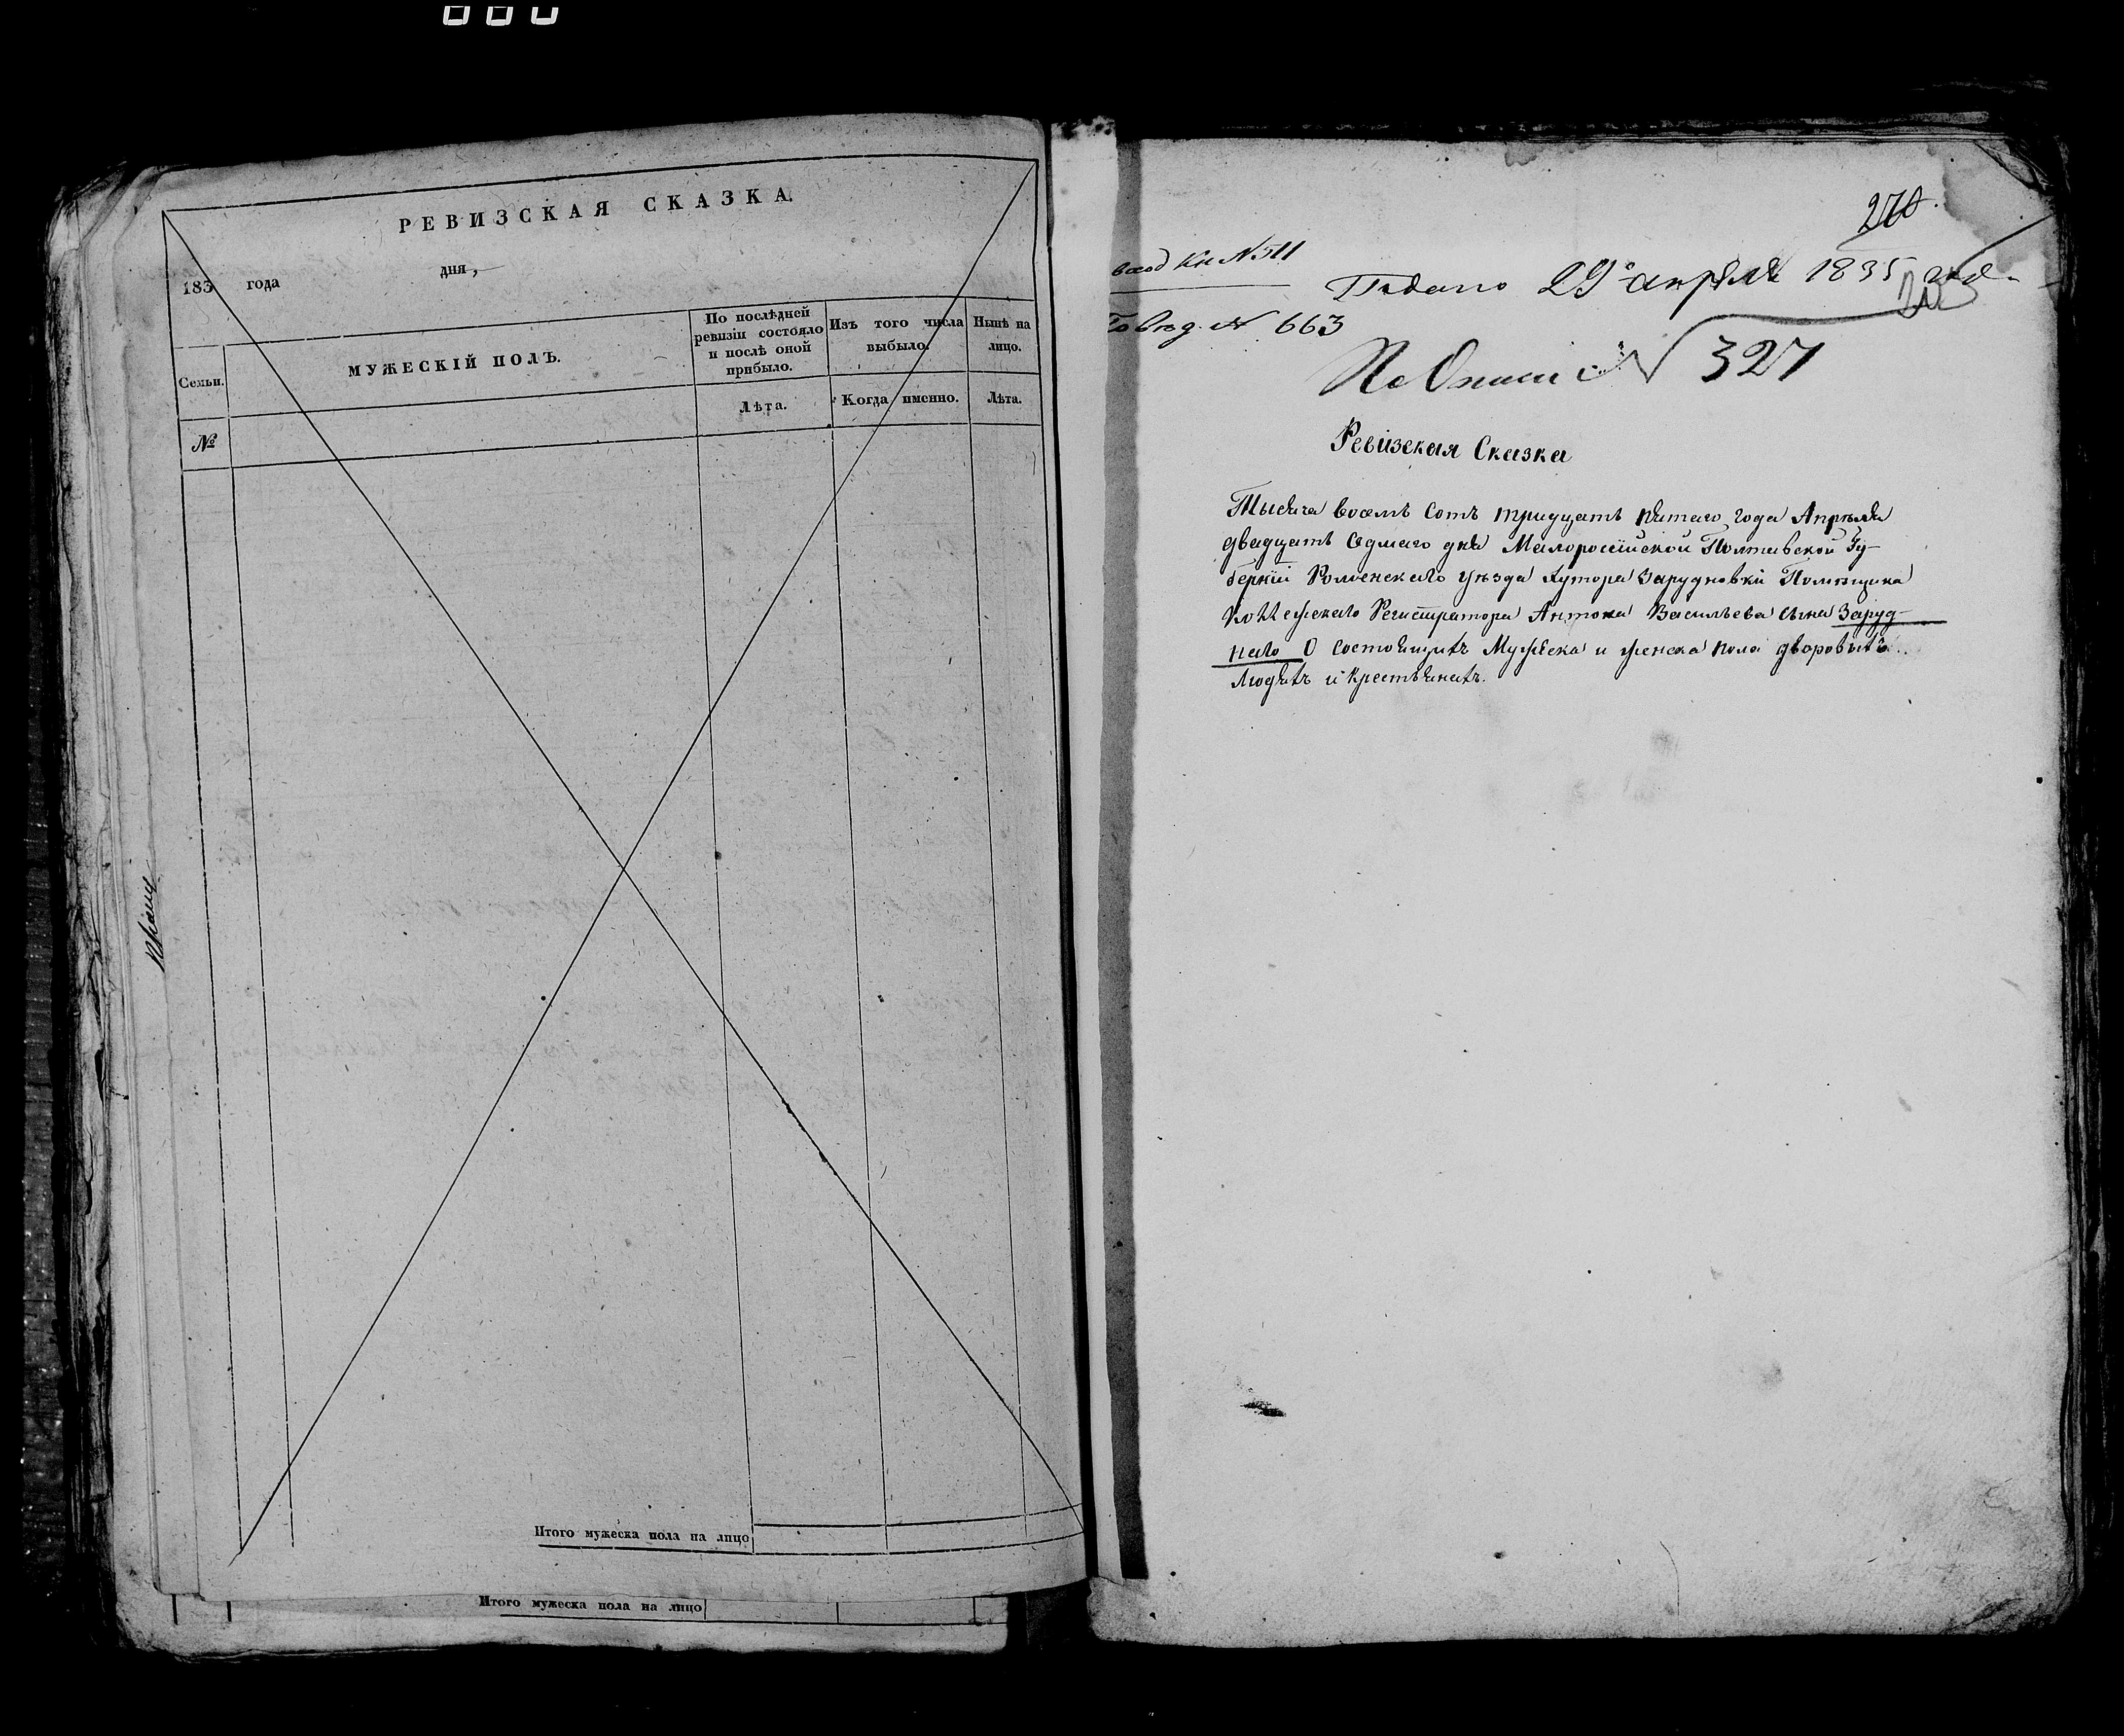 РЕВИЗСКАЯ СКАЗКА.
183 года дня,
Семьи.
МУЖЕСКІЙ ПОЛЪ.
По послѣдней ревизіи состояло и послѣ оной прибыло.
Изъ того числа выбыло.
Нынѣ на лицо.
Лѣта.
Когда именно.
Лѣта.
№
Итого мужеска пола на лицо
Итого мужеска пола на лицо
270
Кн N 511
Подано 29го апреля 1835 года
№ 663
По Описи № 327
Ревизская Сказка
Тысяча восемь сотъ тридцать пятаго года Апрѣля
двадцать седмаго дня Малоросїйской Полтавской Гу-
бернїи Роменскаго уѣзда хутора Зарудновки Помѣщика
Коллежскаго Регистратора Антона Васильева сына Заруд-
наго О состоящихъ Мужеска и женска пола дворовыхъ
людяхъ и крестьянахъ.